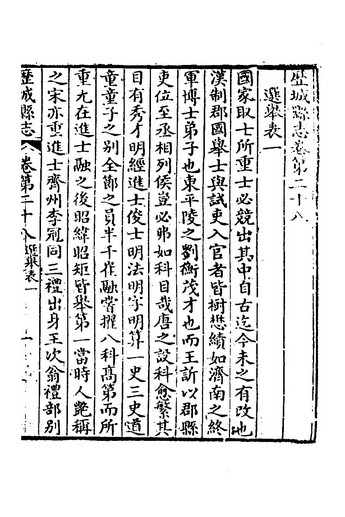 歷城縣志卷第二十八
選舉表一
國家取士所重士必競出其中自古迄今未之有改也
漢制郡國舉士與試吏入官者皆樹懋績如濟南之終
軍博士弟子也東平陵之劉衡茂才也而王訢以郡縣
吏位至丞相列侯豈必弗如科目哉唐之設科愈繁其
目有秀才明經進士俊士明法明字明算一史三史道
童童子之別全鄒之員半千崔融嘗擢八科高第而所
重尤在進士融之後昭緯昭矩皆舉第一當時人艷稱
之宋亦重進士齊州李冠同三禮出身王次翁禮部別
歷城縣志 卷第二十八 選舉表一 一